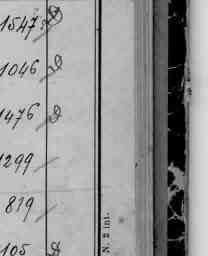 1547
1046
1476
1299
819
105
N. 2 int.